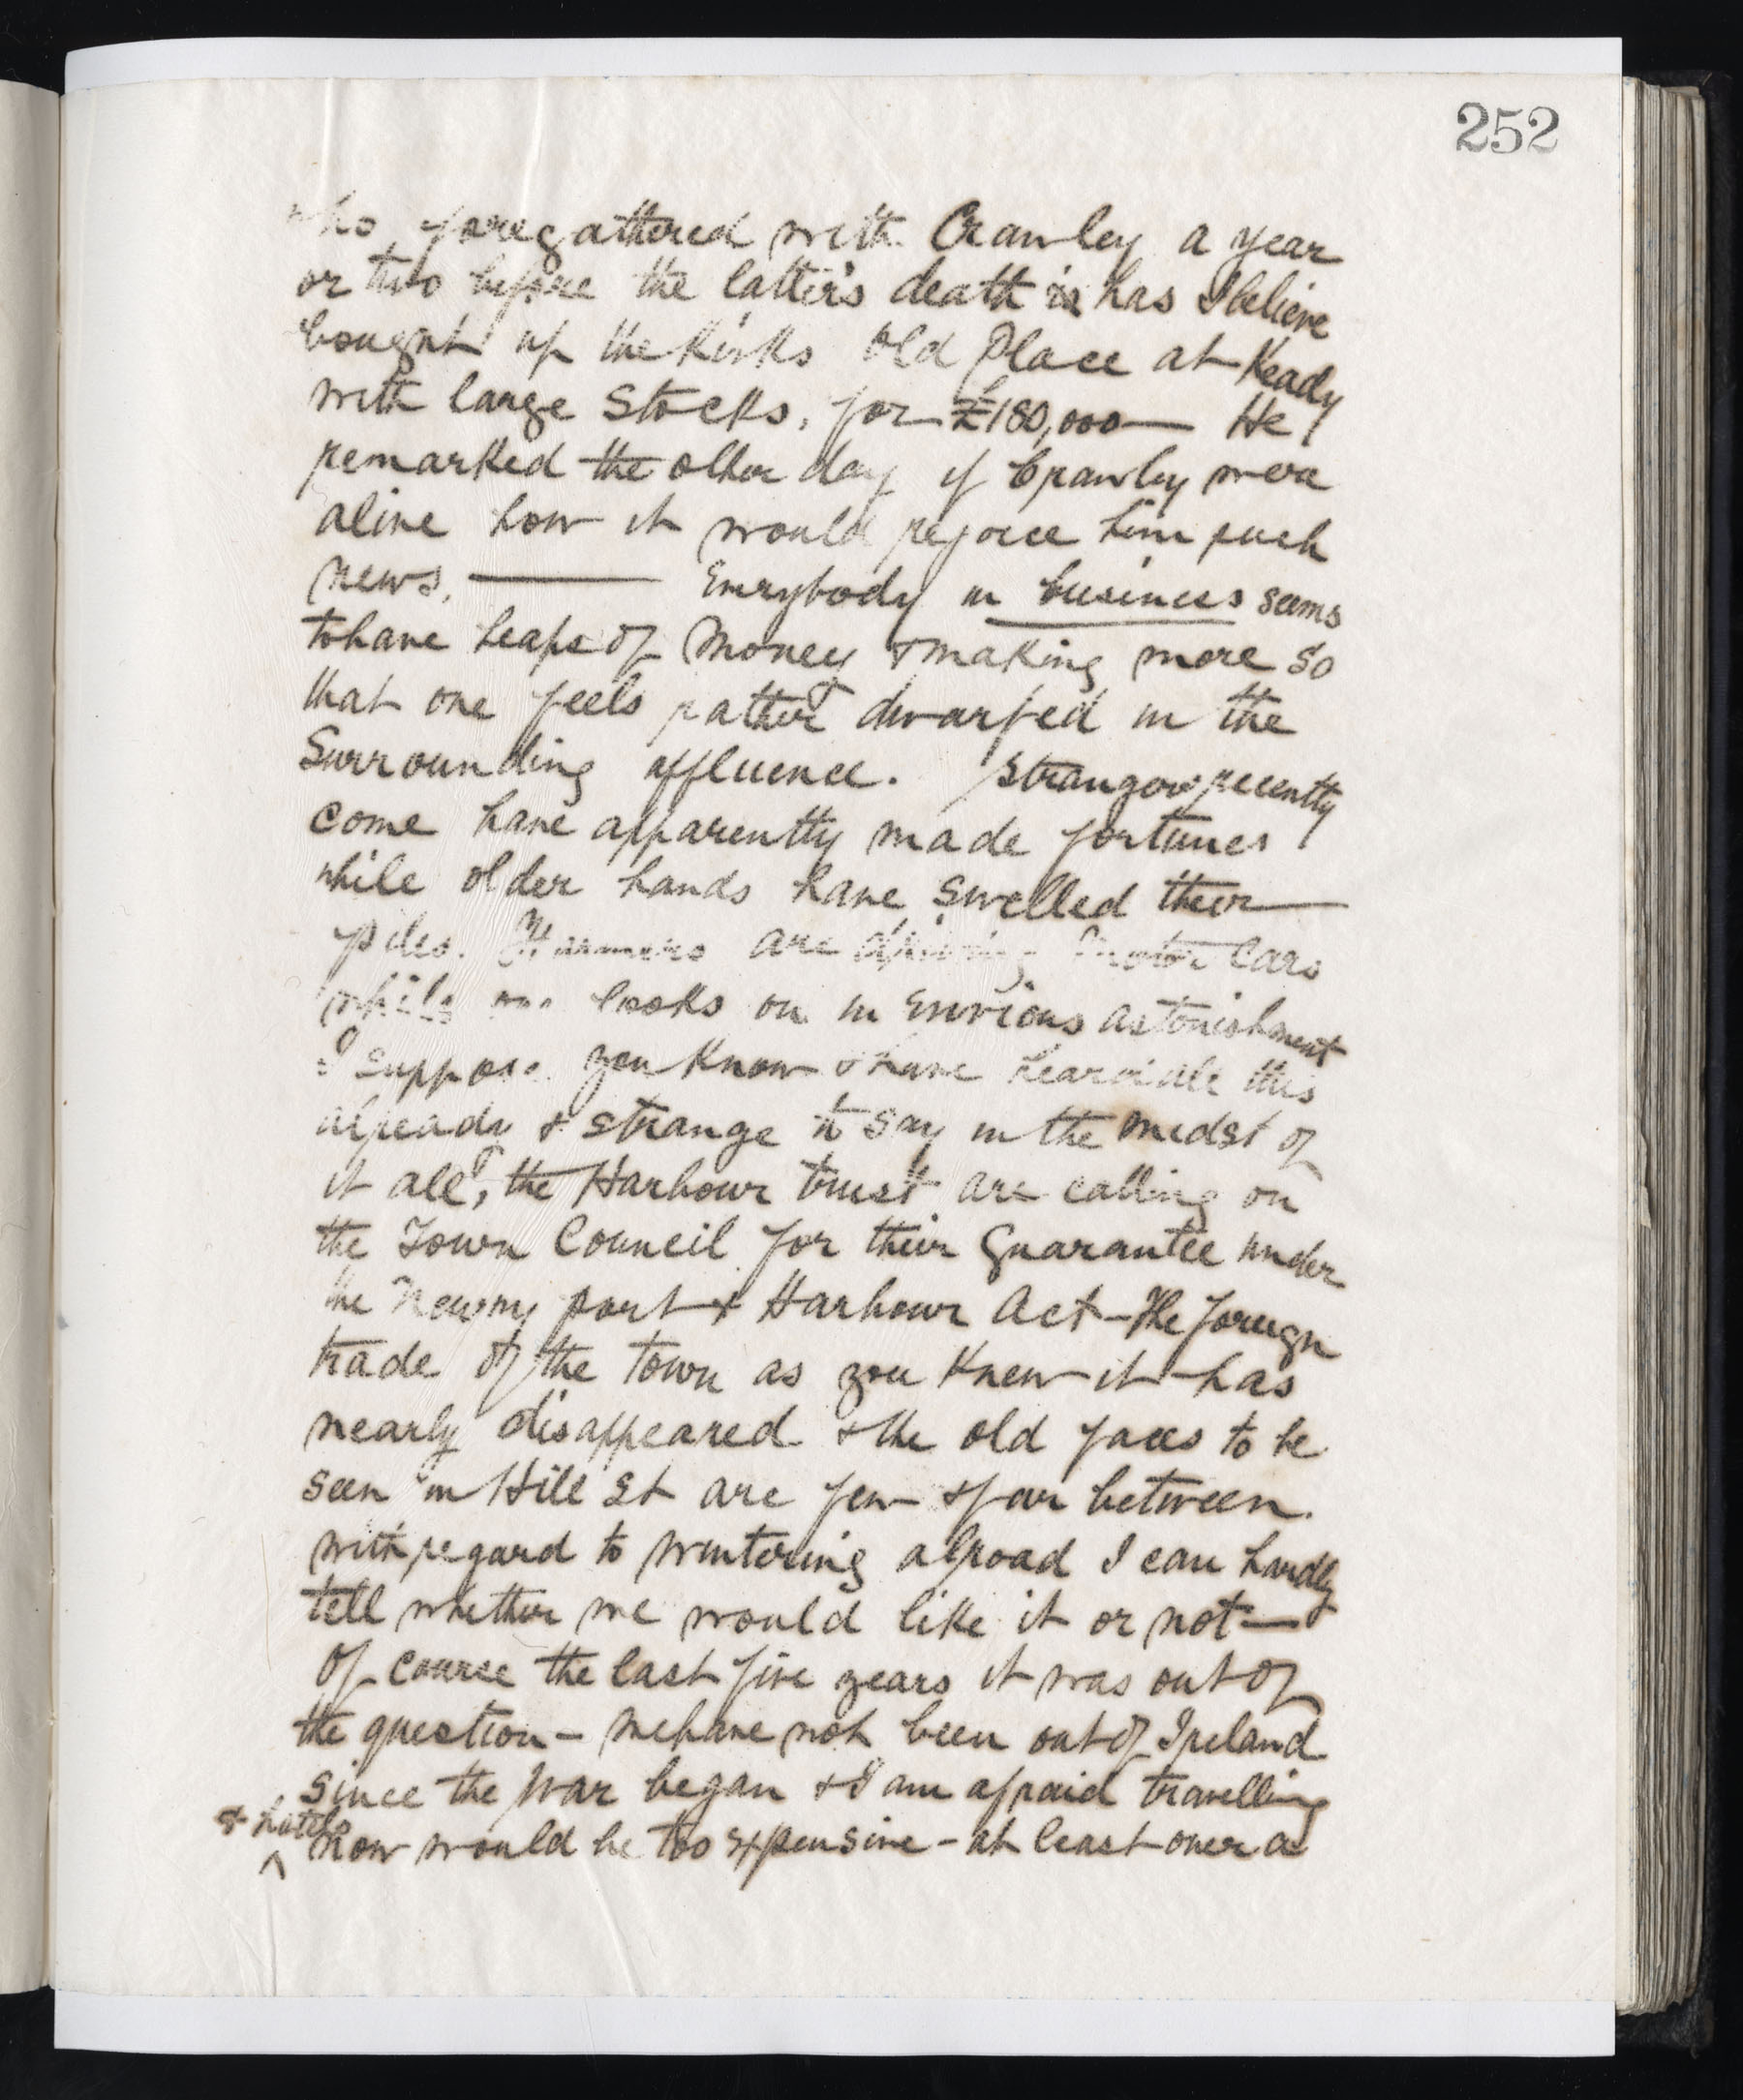 252
who foregathered with Crawley a year
or two before the latter's death is has I believe
bought up the Kirks Old Place at Keady
with large Stocks, for £180,000 — He
remarked the other day if Crawley were
alive how it would rejoice him such
news. — Everybody in business seems
to have heaps of money & making more so
that one feels rather dwarfed in the
Surrounding affluence. Strangers recently
come have apparently made fortunes
while older hands have swelled their —
piles. Farmers are driving motor cars
while one looks on in envious astonishment
I suppose you know & have heard all this
already & strange to say in the midst of
it all, the Harbour trust are calling on
the Town Council for their Guarantee under
the Newry port & Harbour Act - The foreign
trade of the town as you knew it has
nearly disappeared & the old faces to be
seen in Hill St are few & far between.
with regard to wintering abroad I can hardly
tell whether we would like it or not —
Of course the last five years it was out of
the question - we have not been out of Ireland
since the war began & I am afraid travelling
& hotels
now would be too expensive - at least over a